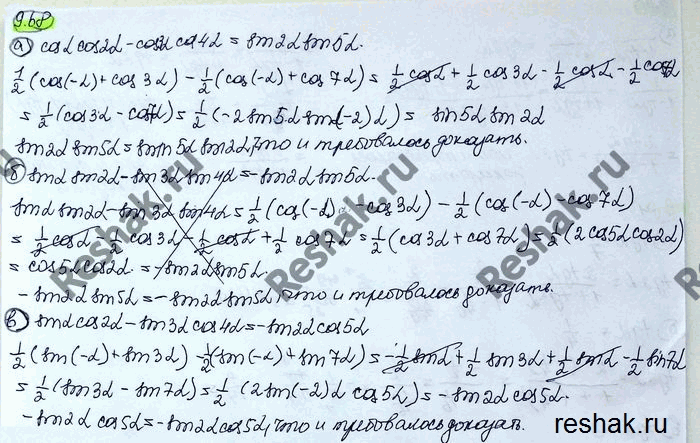 9.68
а) cosα cos2α - cos3α cos4α = sin2α sin5α.
1/2 (cos(-α) + cos 3α) - 1/2 (cos(-α) + cos 7α) = 1/2 cosα + 1/2 cos 3α - 1/2 cosα - 1/2 cos7α
= 1/2 (cos3α - cos7α) = 1/2 (-2 sin5α sin(-2)α) = sin5α sin2α
sin2α sin5α = sin5α sin2α, что и требовалось доказать.
б) sinα sin2α - sin3α sin4α = -sin2α sin5α.
sinα sin2α - sin3α sin4α = 1/2 (cos(-α) - cos3α) - 1/2 (cos(-α) - cos7α)
= 1/2 cosα - 1/2 cos3α - 1/2 cosα + 1/2 cos7α = 1/2 (cos3α + cos7α) = 1/2 (2cos5α cos2α)
= cos5α cos2α = -sin2α sin5α.
- sin2α sin5α = - sin2α sin5α, что и требовалось доказать.
в) sinα cos2α - sin3α cos4α = -sin2α cos5α
1/2 (sin(-α) + sin3α) - 1/2 (sin(-α) + sin7α) = -1/2 sinα + 1/2 sin3α + 1/2 sinα - 1/2 sin7α
= 1/2 (sin3α - sin7α) = 1/2 (2sin(-2)α cos5α) = -sin2α cos5α.
- sin2α cos5α = -sin2α cos5α, что и требовалось доказат.
Reshak.ru
Reshak.ru
Reshak.ru
reshak.ru